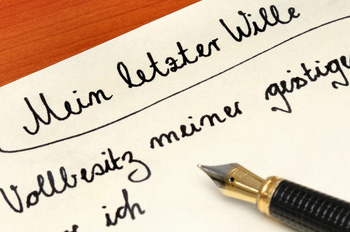 Mein letzter Wille
Vollbesitz meiner geistige
ich